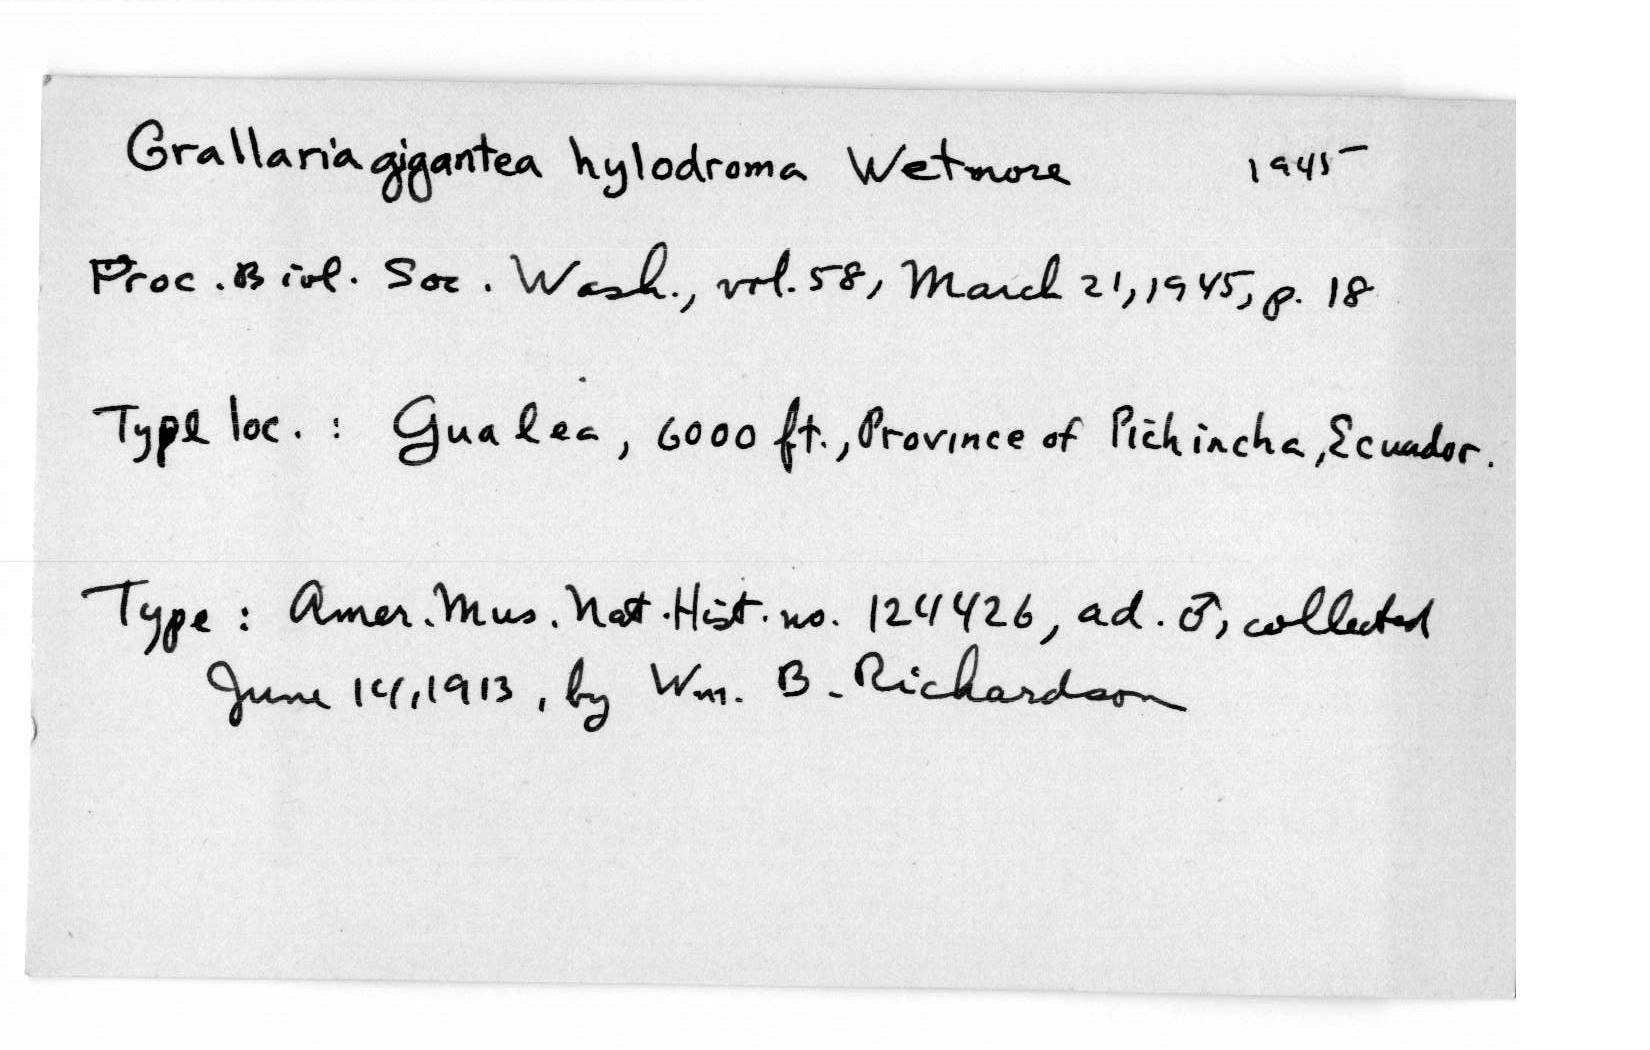 Grallaria gigantea hylodroma Wetmore 1945
Proc. Biol. Soc. Wash., vol. 58, March 21, 1945, p. 18
Type loc. : Gualea, 6000 ft., Province of Pichincha, Ecuador.
Type : Amer. Mus. Nat. Hist. no. 124426, ad. ♂, collected
June 14, 1913, by Wm. B. Richardson